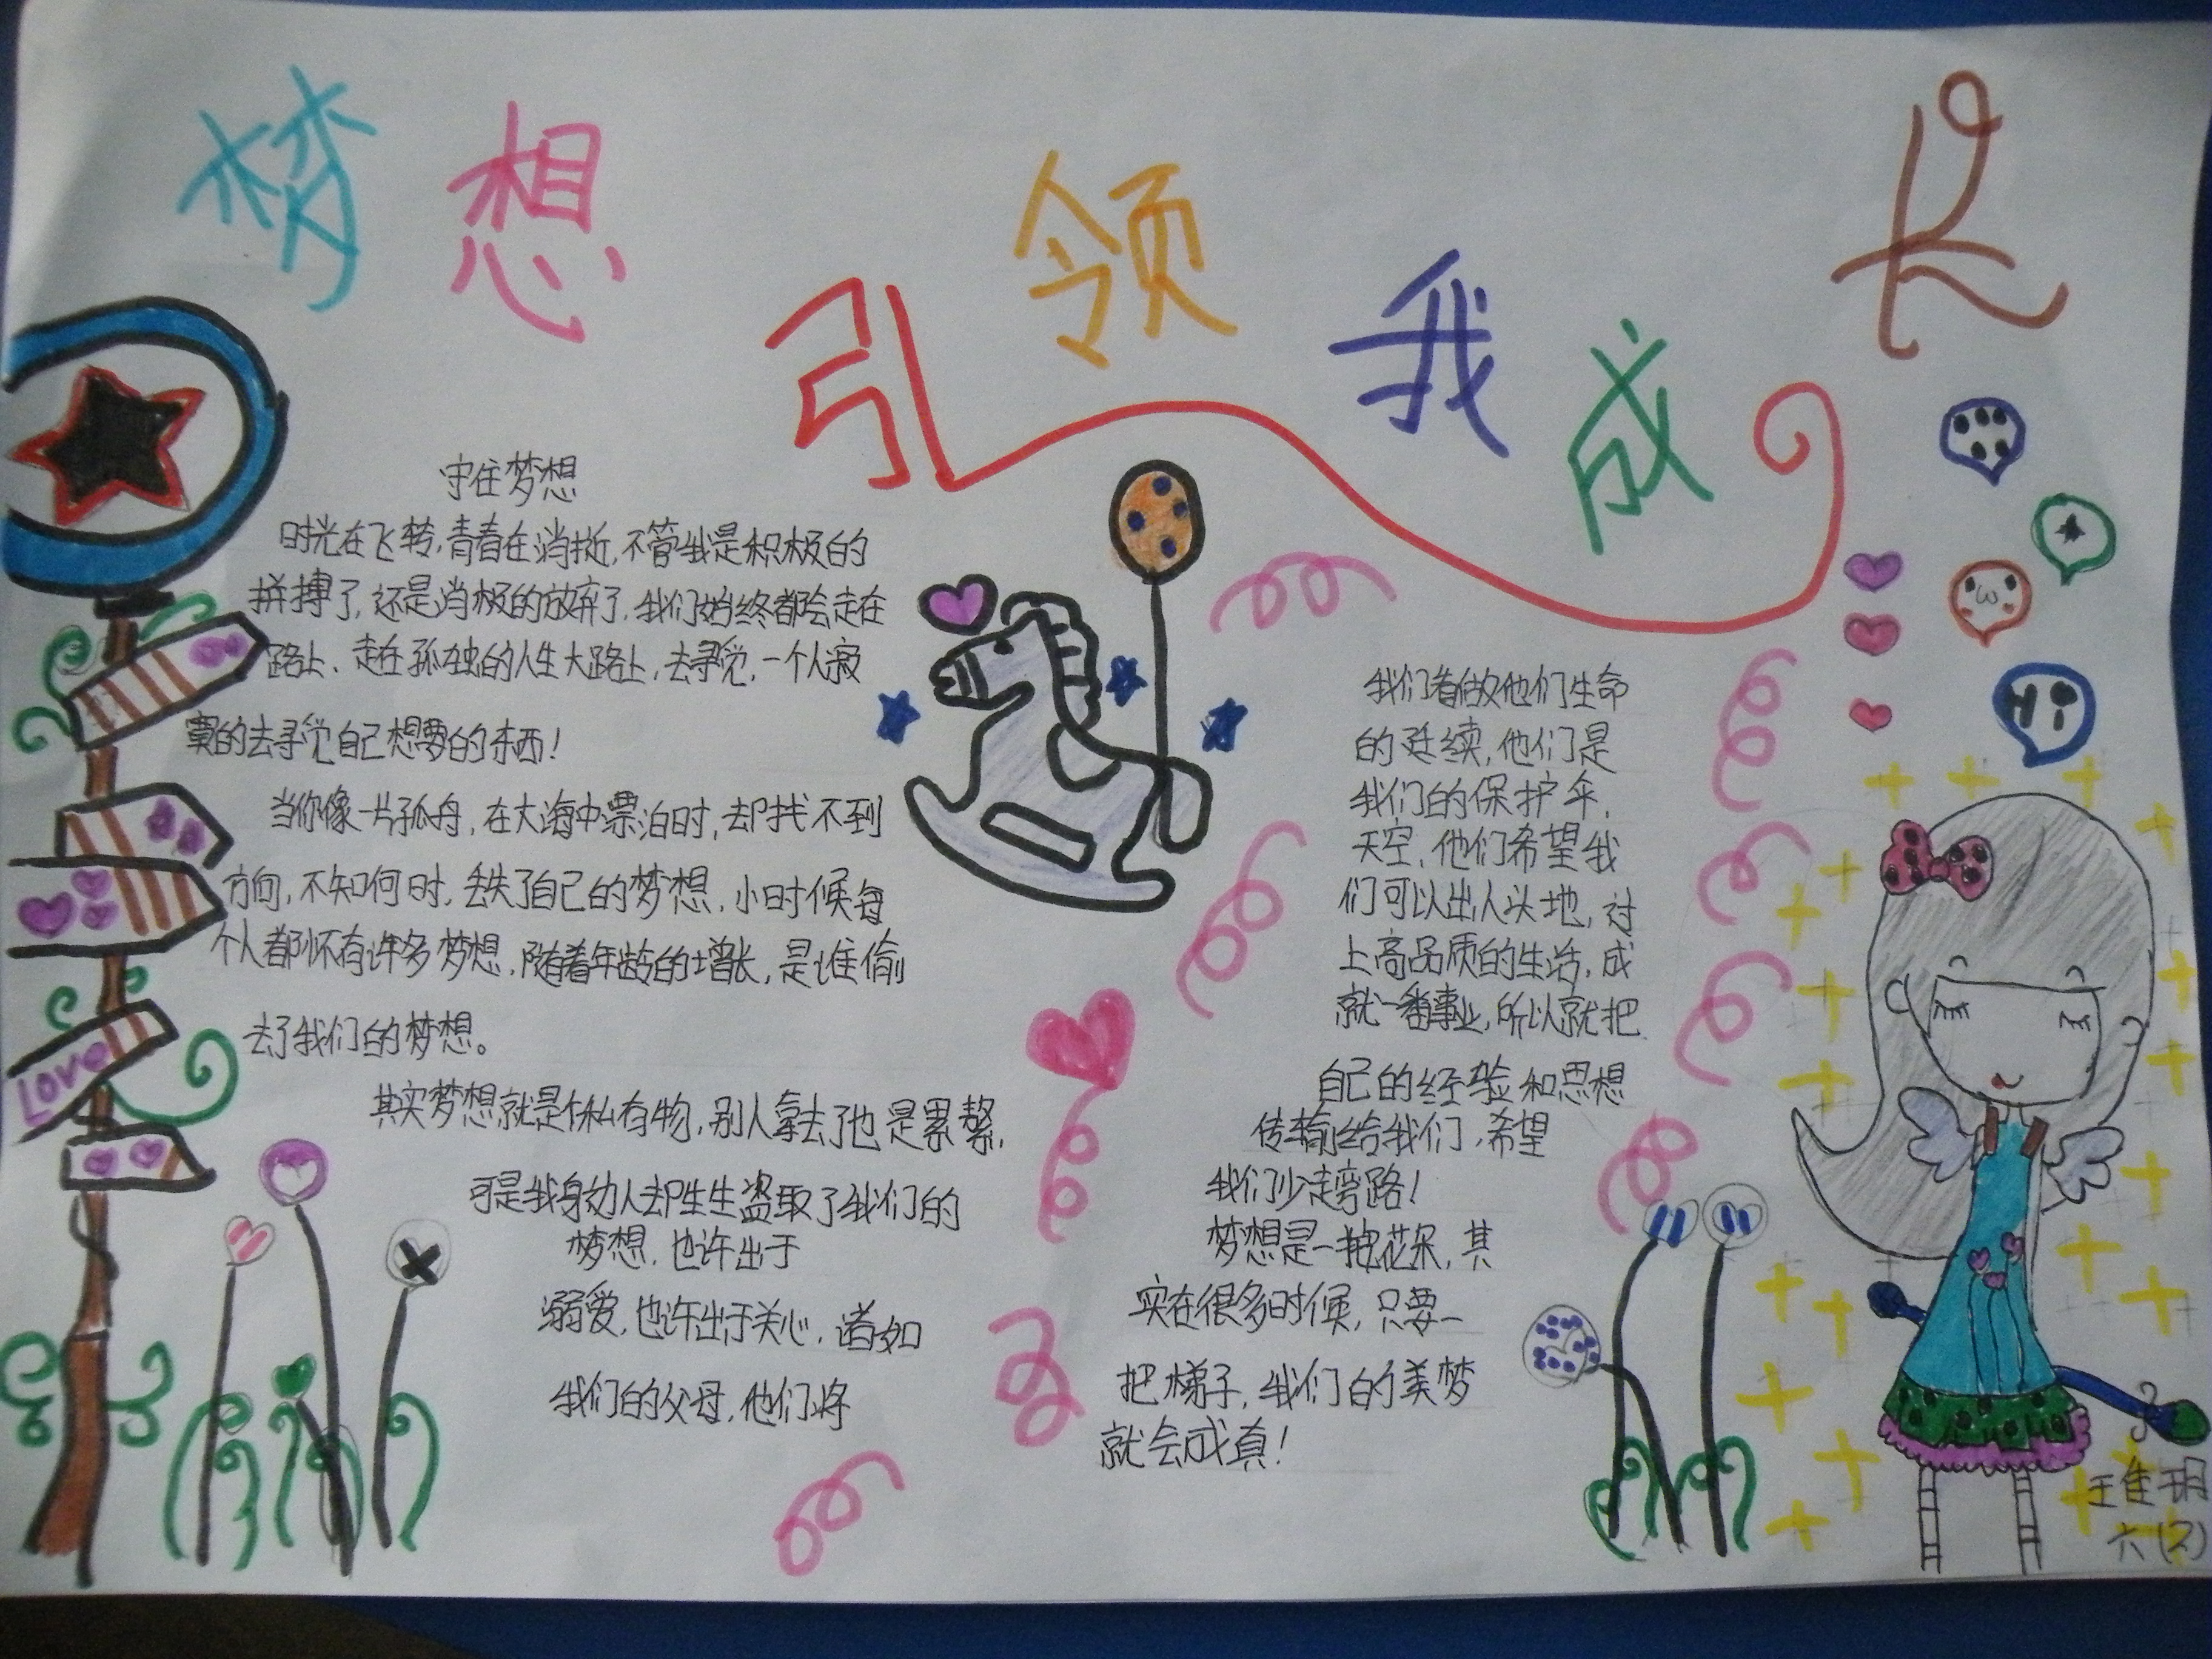 梦想引领我成长
守住梦想
时光在飞转,青春在消逝,不管我是积极的
拼搏了,还是消极的放弃了,我们始终都会走在
路上、走在孤独的人生大路上,去寻觅,一个人寂
寞的去寻觅自己想要的东西!
当你像一片孤舟,在大海中漂泊时,却找不到
方向,不知何时,丢失了自己的梦想,小时候每
个人都怀有许多梦想,随着年龄的增长,是谁偷
去了我们的梦想。
其实梦想就是你私有物,别人拿去了也是累赘,
可是我身边人却生生盗取了我们的
梦想,也许出于
溺爱,也许出于关心,诸如
我们的父母,他们将
我们看做他们生命
的延续,他们是
我们的保护伞,
天空,他们希望我
们可以出人头地,过
上高品质的生活,成
就一番事业,所以就把
自己的经验和思想
传输给我们,希望
我们少走弯路!
梦想是一独花朵,其
实在很多时候,只要一
把梯子,我们的美梦
就会成真!
Love
Hi
王佳玥
六(2)